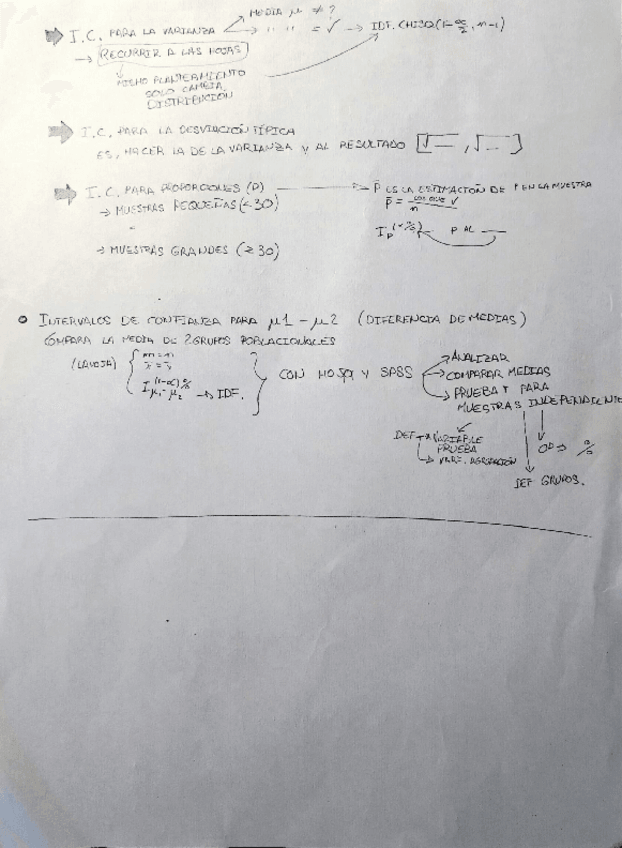 MEDIA μ ≠ ?
I.C. PARA LA VARIANZA → " " = √ → IDF. CHISQ(1-α/2, n-1)
→ RECURRIR A LAS HOJAS
MISMO PLANTEAMIENTO
SOLO CAMBIA
DISTRIBUCIÓN
I.C. PARA LA DESVIACIÓN TÍPICA
ES, HACER LA DE LA VARIANZA Y AL RESULTADO [√—, √...]
I.C. PARA PROPORCIONES (P) → P̄ ES LA ESTIMACIÓN DE P EN LA MUESTRA
→ MUESTRAS PEQUEÑAS (<30)
P AL
→ MUESTRAS GRANDES (≥30)
INTERVALOS DE CONFIANZA PARA μ1 - μ2 (DIFERENCIA DE MEDIAS)
COMPARA LA MEDIA DE 2 GRUPOS POBLACIONALES
→ IDF.
CON HOJA Y SPSS
→ ANALIZAR
→ COMPARAR MEDIAS
→ PRUEBA T PARA
MUESTRAS INDEPENDIENTE
DEF → VARIABLE
PRUEBA
→ VAR. AGRUPACIÓN
OP → %
DEF GRUPOS.